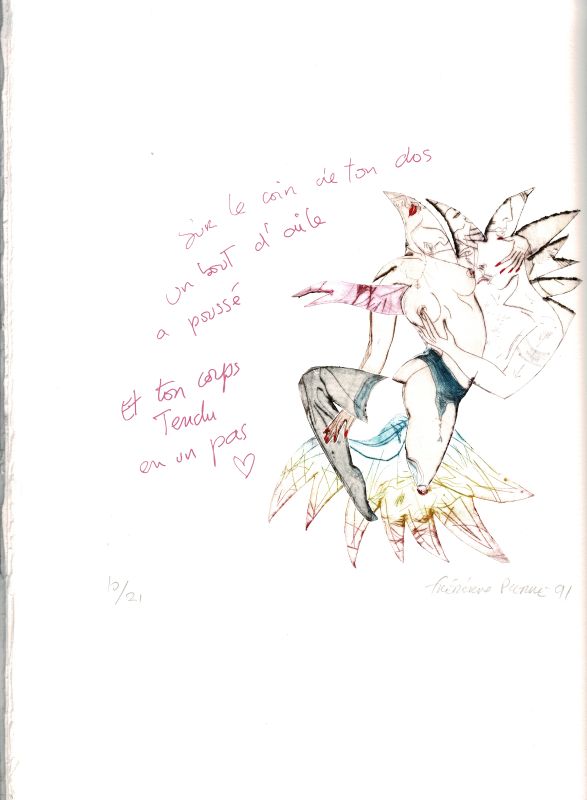 Sur le coin de ton dos
un bout d'aile
a poussé
Et ton corps
Tendu
en un pas
10/21
91